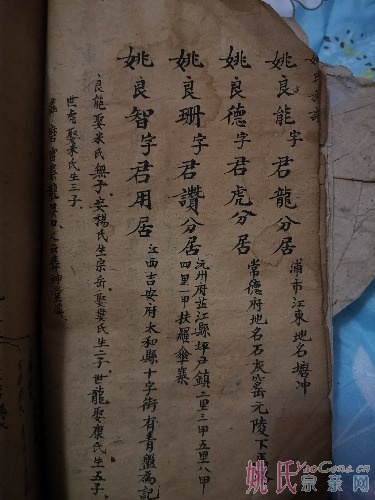 姚氏族譜
姚良能字君龍分居
浦市江東地名塘冲
姚良德字君虎分居
常德府地名石灰窑元陵下
姚良珊字君讚分居
沅州府芷江縣坪弓鎮二里三甲五里八甲
四里一甲扶羅傘寨
姚良智字君用居
江西吉安府太和縣十字街有青盤為記
良能娶米氏無子安楊氏生宗奇娶婁氏生二子世龍娶康氏生五子
世虎娶米氏生三子
姚氏宗亲网
YaoGens.cn